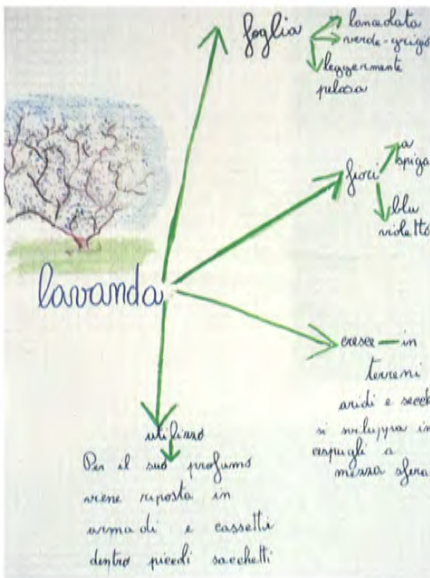 foglia
lanceolata
verde-grigio
leggermente
pelosa
fiori
a
spiga
blu
violetto
lavanda
cresce — in
terreni
aridi e secchi
si sviluppa in
cespugli a
mezza sfera
utilizzo
Per il suo profumo
viene riposta in
armadi e cassetti
dentro piccoli sacchetti